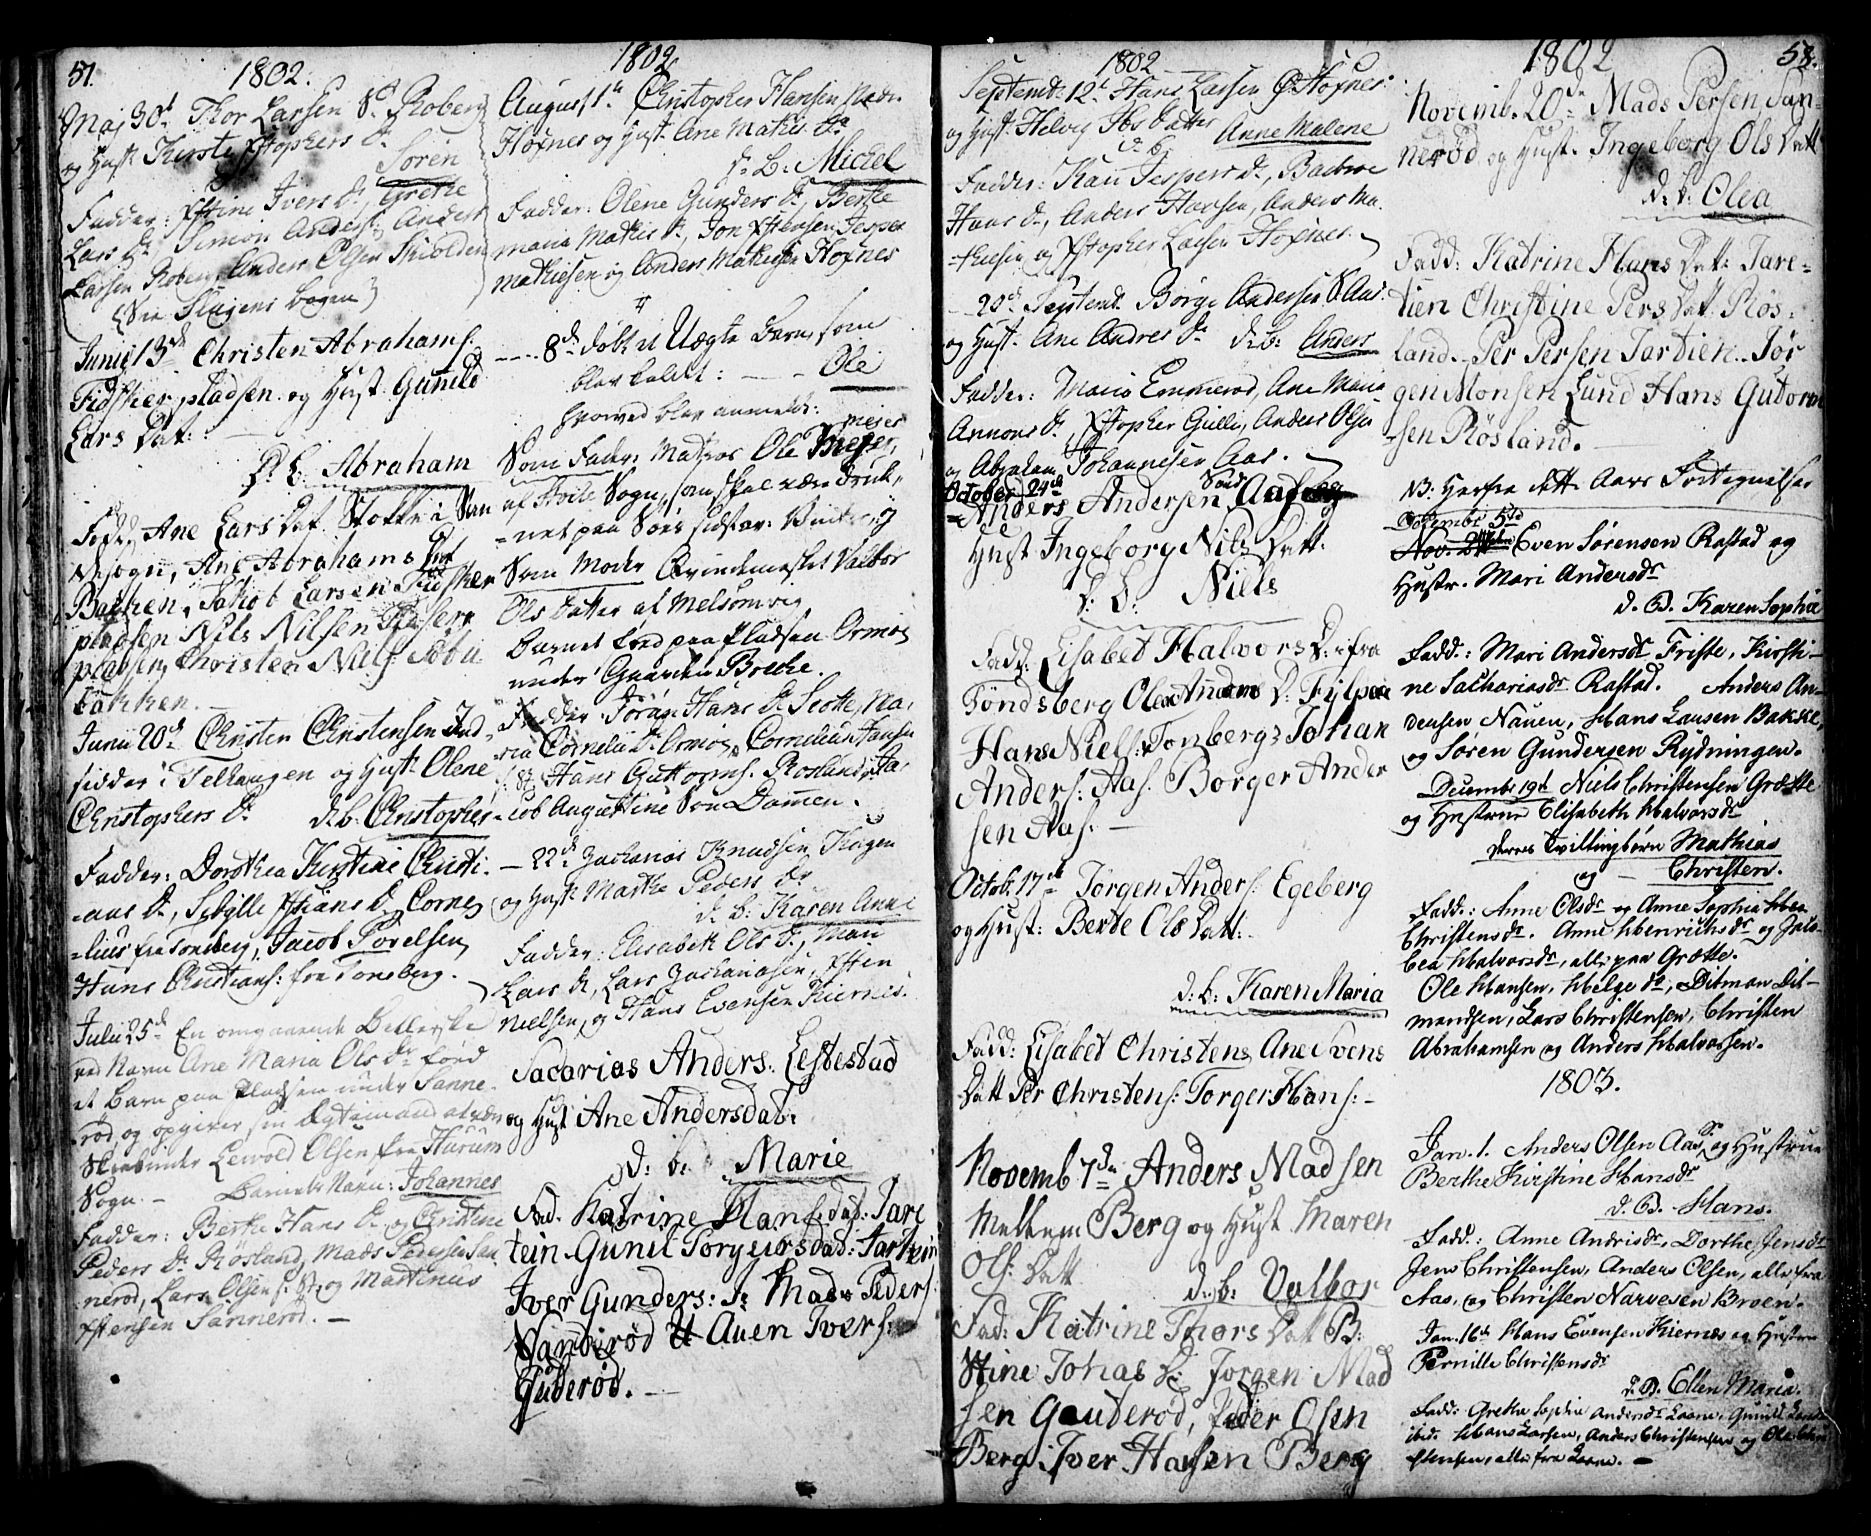 57.
1802.
Maj 30d Thor Larsen Sd. Roberg
og Hust. Kirste Xstophers Dr.
Søren
Fadder: Xstine Ivers Dr, Grethe
Lars Dr Simon Anders: Anders
Larsen Roberg Anders Olsen Skiolden
(Sin Slagens bogen)
Junij 13de Christen Abrahams:
Fidskerpladsen og Hust Gunild
Lars Dat:
D. b. Abraham
Fad: Ane Lars Dat. Stokke i San
Ne sogn, Ane Abrahams Dat
Bakken, Jakob Larsen Fidsker
pladsen Nils Nilsen Fidsker
pladsen, Christen Niels:
bakken.
Junii 20d Christen Christensen Ind
sidder i Telhaugen og Hust. Olene
Christophers Dr d. b. Christopher
Fadder: Dorothea Kirstine Christi-
-ans Dr, Sibylle Xstians Dr, Corne
-lius fra Tonsberg, Jacob Sørelsen,
Hans Christians: fra Tonsberg.
Julii 25d En omgaaende Betlerske
ved Navn Ane Maria Ols Dr. fød
et Barn paa Pladsen under Sanne-
-rød, og opgiver sin Egtemand at være
Skræder Lewold Olsen fra Hurum
Sogn. - Barnets Navn: Johannes
Fadder: Berthe Hans Dr og Christine
Peders Dr Røsland, Mads Pedersen San
nerød, Lars Olsen og Martinus
Xstensen Sannerød. -
1802
August 1te Christopher Hansen Nedr.
Hoxnes og Hust. Ane Mathis Dr
d. B: Michel
Fadder: Olene Gunders Dr, Berthe
maria Mathis Dr, Jon Xstensen Jesper
Mathiesen og Anders Mathiesen Hoxnes
8de døbt et Uægte Barn, som
blev kaldt: - - Ole
hvorved blev anmeldt:
Som Fader: Matros Ole Mejer, mejer
af Hvile Sogn, som skal være Druk,
-net paa Søen sidstav: Vinter og
Som Moder Qvindemenniske Valbor
Ols Datter af Melsomvig
Barnet fød paa Pladsen Ormos
under Gaarden Breche.
Fadder Jøran Hans Dr Scotte, Ma
ria Cornelii Dr. Ormos, Cornelius Hansen
Hans Guttorms. Røsland, Ja
-cob Augustine Søn Dammen.
- 22de Zacharias Knudsen Hogen
og Hust. Marthe Peders Dr
d. b: Karen Anne
Fadder: Elisabeth Ols Dr, Mari
Lars Dr, Lars Zachariasen, Xsten
Nielsen, og Hans Evensen Kiernes.
Sacarias Anders: Lestestad
og Hust Ane Andersdat:
d: b: Marie
Fad. Katrine Hans:dat: Tare
tein Gunil Torgiursdad: Tartein
Iver Gunders: Mads Peders:
Sanderød Auen Ivers:
Guderød. -
1802
Septembr: 12te Hans Larsen Ø. Hoxnes
og Hust. Helvig Ibs Datter
d. b. Anne Malene
Fadder: Kari Jespers Dr, Barbroe
Hans Dr, Anders Hansen, Anders Ma-
-thiesen og Xstopher Larsen Hoxnes.
- 20de Septembr Børge Andersen S Aas.
og Hust. Ane Andres Dr d. b: Anders
Fadder: Maria Emmerød, Ane Maria
Ammons Dr, Xstopher Gulli, Anders Olsen
og Abraham Johannesen Aas.
October 24de
Anders Andersen Sønd Aas
Hust Ingeborg Nils Datt:
D: b: Niels
Fadd: Lisabet Halvors D: ifra
Tøndsberg Olea Anders D. Fylpaa
Hans Niels: Tonberg: Johan
Anders: Aas. Børger Ander
sen Aas. -
Octob. 17de Jørgen Anders: Egeberg
og Hust: Berte Ols Datt:
d: b: Karen Maria
Fadd: Lisabet Christens Ane Svens
Datt Per Christens: Torger Hans: -
Novemb 7de Anders Madsen
Mellem Berg og Hust Maren
Ols: Datt d: b: Valbor
Fad: Katrine Thors Datt B:
Stine Johas D: Jorgen Mad
sen Gauterød, Peder Osen
Berg: Iver Hansen Berg
1802
58.
Novemb. 20de Mads Persen San-
nerød og Hust. Ingeborg Ols Datt
d: b: Olea
Fadd: Katrine Hans Datt: Tare-
tien Christine Pers Datt: Røs-
land. Per Persen Tartien. Jør
gen Monsen Lund Hans Gutorm
-sen Røsland. -
NB. Herfra dette Aars Fortegnelse
Decembr 5td
Nov. 21 Even Sørensen Rastad og
Hustr. Mari Andersdr
d. B. Karen Sophie
Fadd.: Mari Andersdr Friste, Kirsti-
ne Sachariasdr Rastad. Anders An-
dersen Nauen, Hans Laursen Bakke,
og Søren Gundersen Rydningen.
Decembr 19d Niels Christensen Grætte
og Hustrue Elisabeth Halvorsdr
deres Tvillingbørn Mathias
og - Christen.
Fadd.: Anne Olsdr og Anne Sophia
Christensdr. Anne Henrichsdr og Jaco-
bea Halvorsdr, alle paa Grætte.
Ole Hansen, Helge do, Ditman Dit-
mandsen, Lars Christensen, Christen
Abrahamsen og Anders Halvorsen.
1803.
Jan. 1. Anders Olsen Aas S. og Hustrue
Berthe Kirstine Hansdr
d. B. Hans.
Fadd.: Anne Andrisdr, Dorthe Jensdr
Jens Christensen, Anders Olsen, alle fra
Aas, og Christen Narvesen Broen.
Jan. 16d Hans Evensen Kiernes og Hustrue
Pernille Christensdr
d. B. Ellen Maria.
Fadd: Grethe Sophia Andersdr Laane, Gunild Larsdr
ibid. Hans Larsen, Anders Christensen og Ole Chri
stensen, alle fra Laane. -